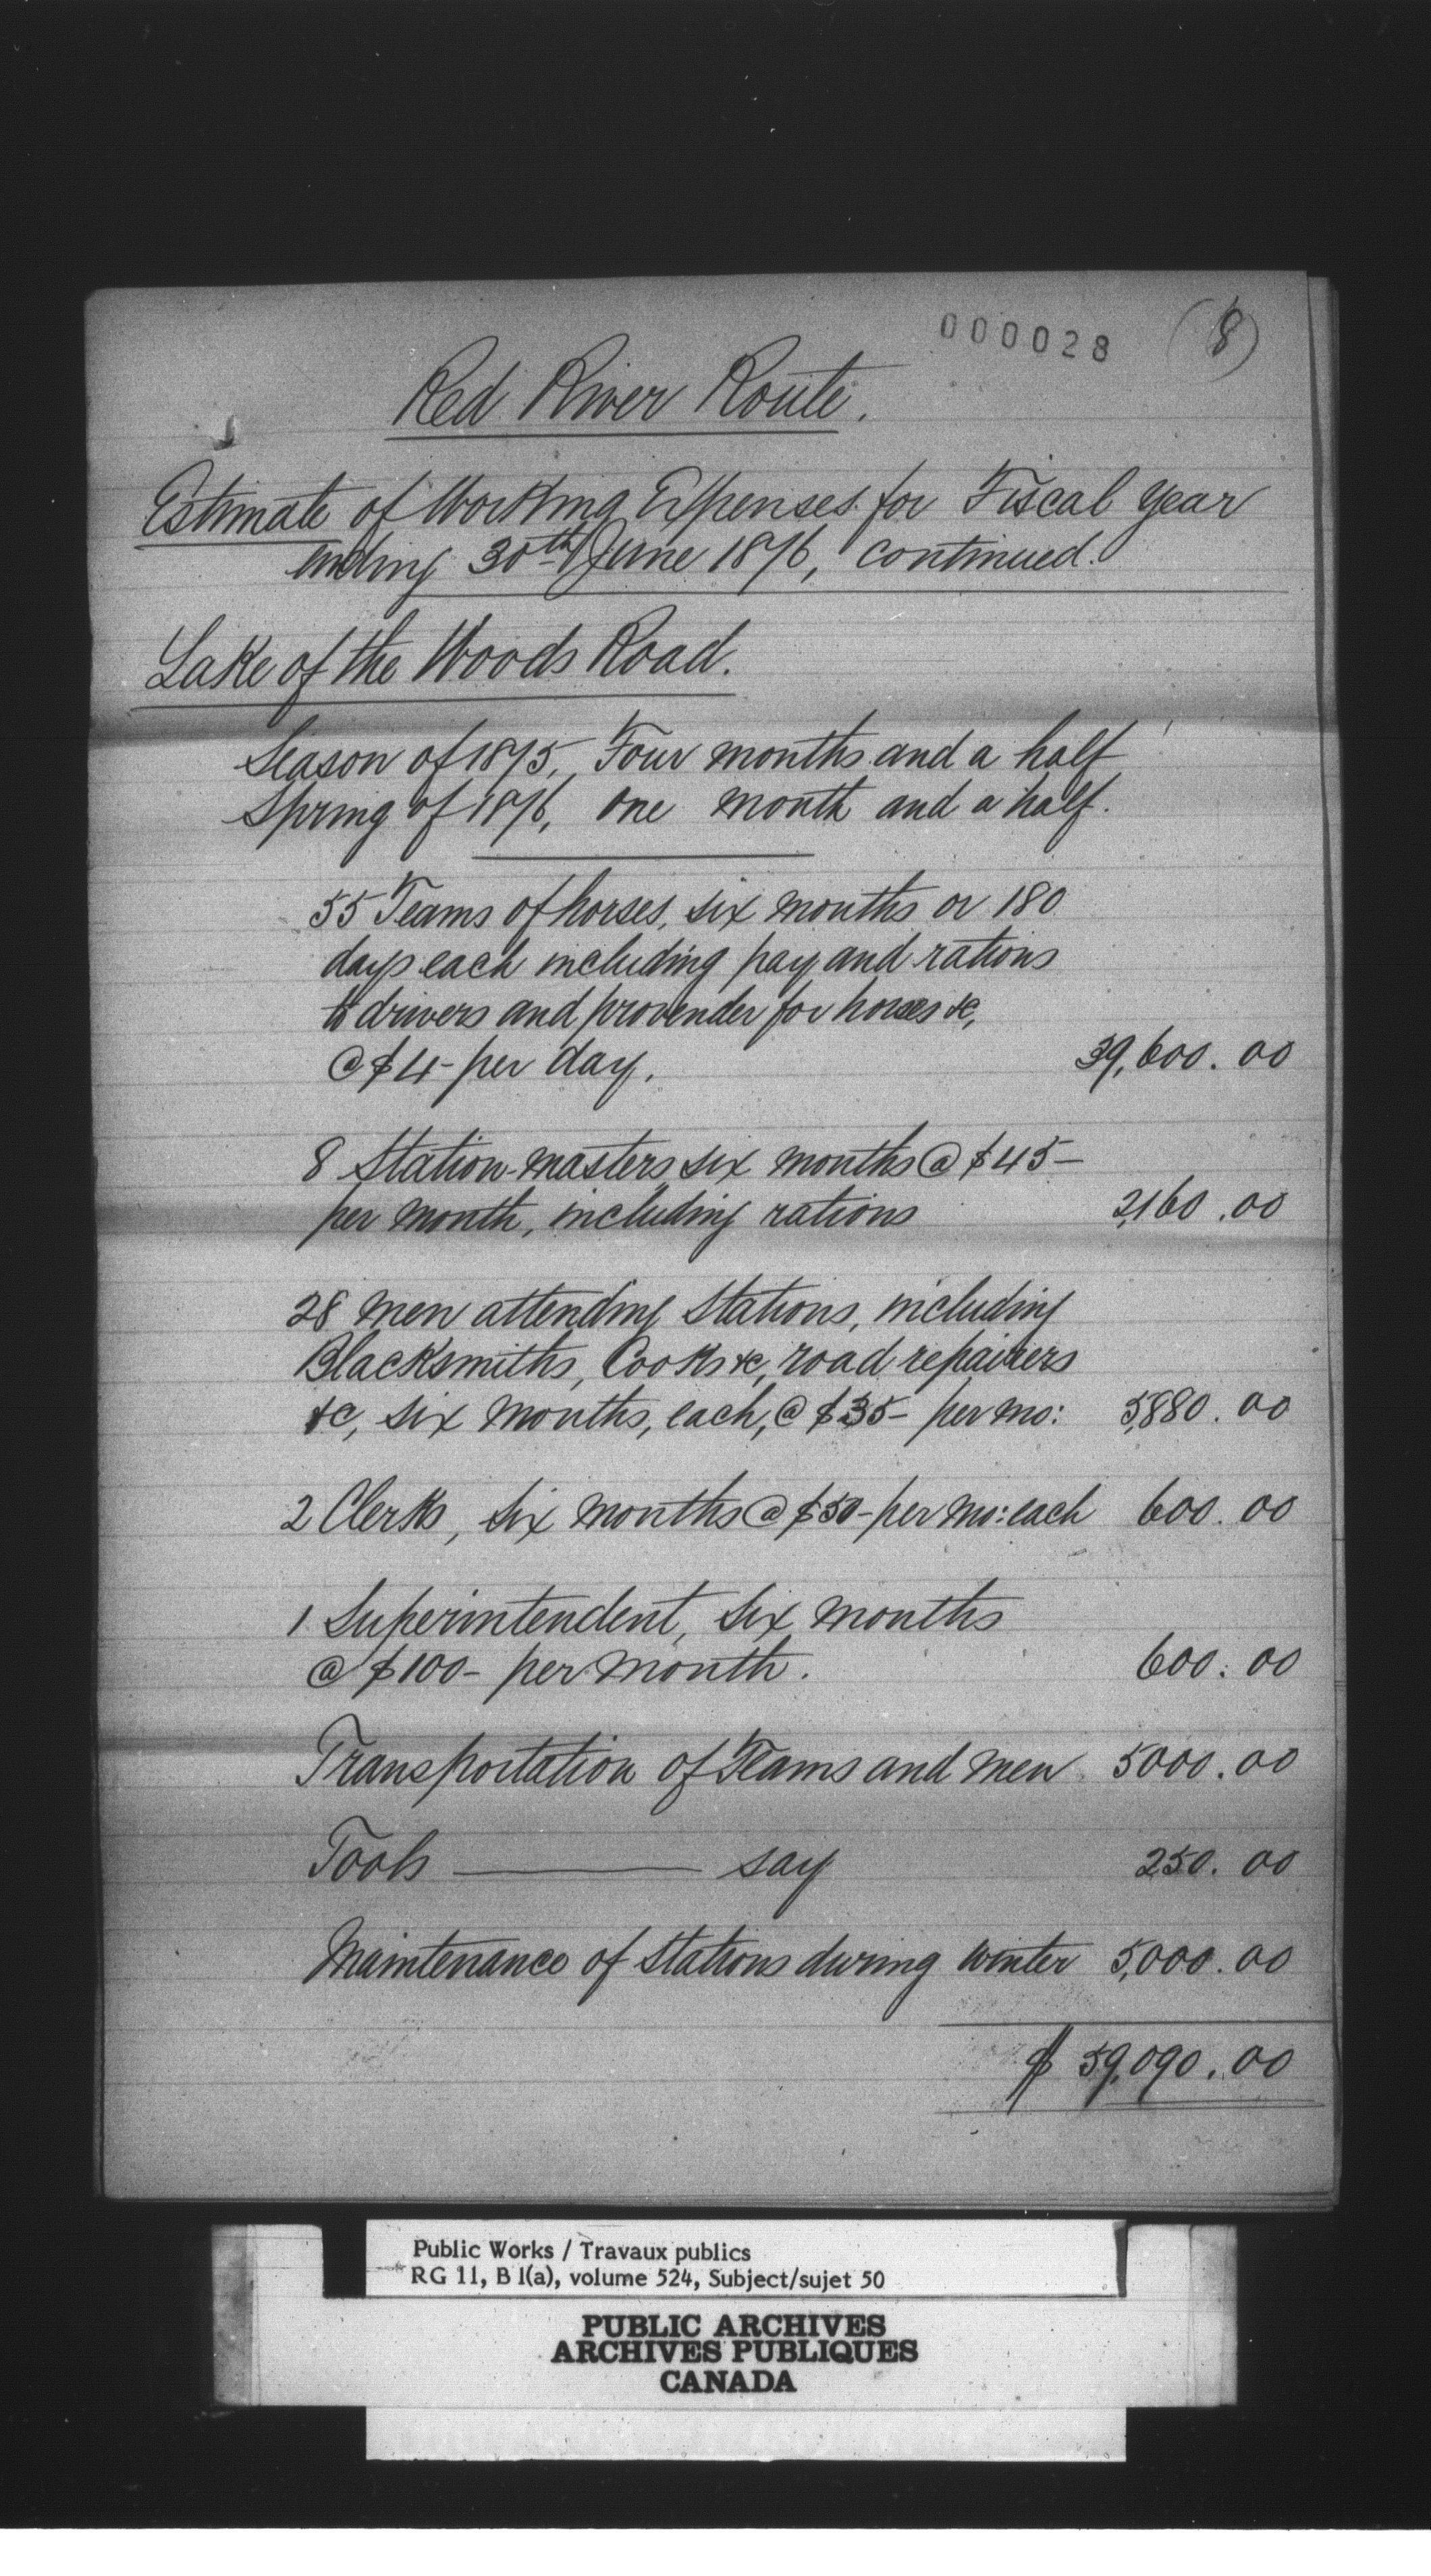 000028 (8)
Red River Route.
Estimate of Working Expenses for Fiscal Year
ending 30th June 1876, continued.
Lake of the Woods Road.
Season of 1875, Four months and a half
Spring of 1876, one month and a half.
55 Teams of horses, six months or 180
days each including pay and rations
to drivers and provender for horses &c,
@ $4- per day. 39,600.00
8 Station-masters six months @ $45-
per month, including rations 2,160.00
28 men attending Stations, including
Blacksmiths, Cooks &c, road repairers
&c, six months, each, @ $35- per mo: 5,880.00
2 Clerks, six months @ $50- per mo: each 600.00
1 Superintendent, six months
@ $100- per month. 600.00
Transportation of Teams and men 5000.00
Tools ——— say 250.00
Maintenance of Stations during winter 5,000.00
$ 59,090.00
Public Works / Travaux publics
RG 11, B 1(a), volume 524, Subject/sujet 50
PUBLIC ARCHIVES
ARCHIVES PUBLIQUES
CANADA